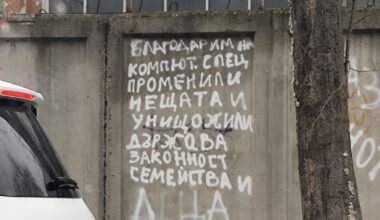 БЛАГОДАРИМ НА
КОМПЮТ. СПЕЦ
ПРОМЕНИЛИ
НЕЩАТА И
УНИЩОЖИЛИ
ДЪРЖОВА
ЗАКОННОСТ
СЕМЕЙСТВА И
ДЕЦА